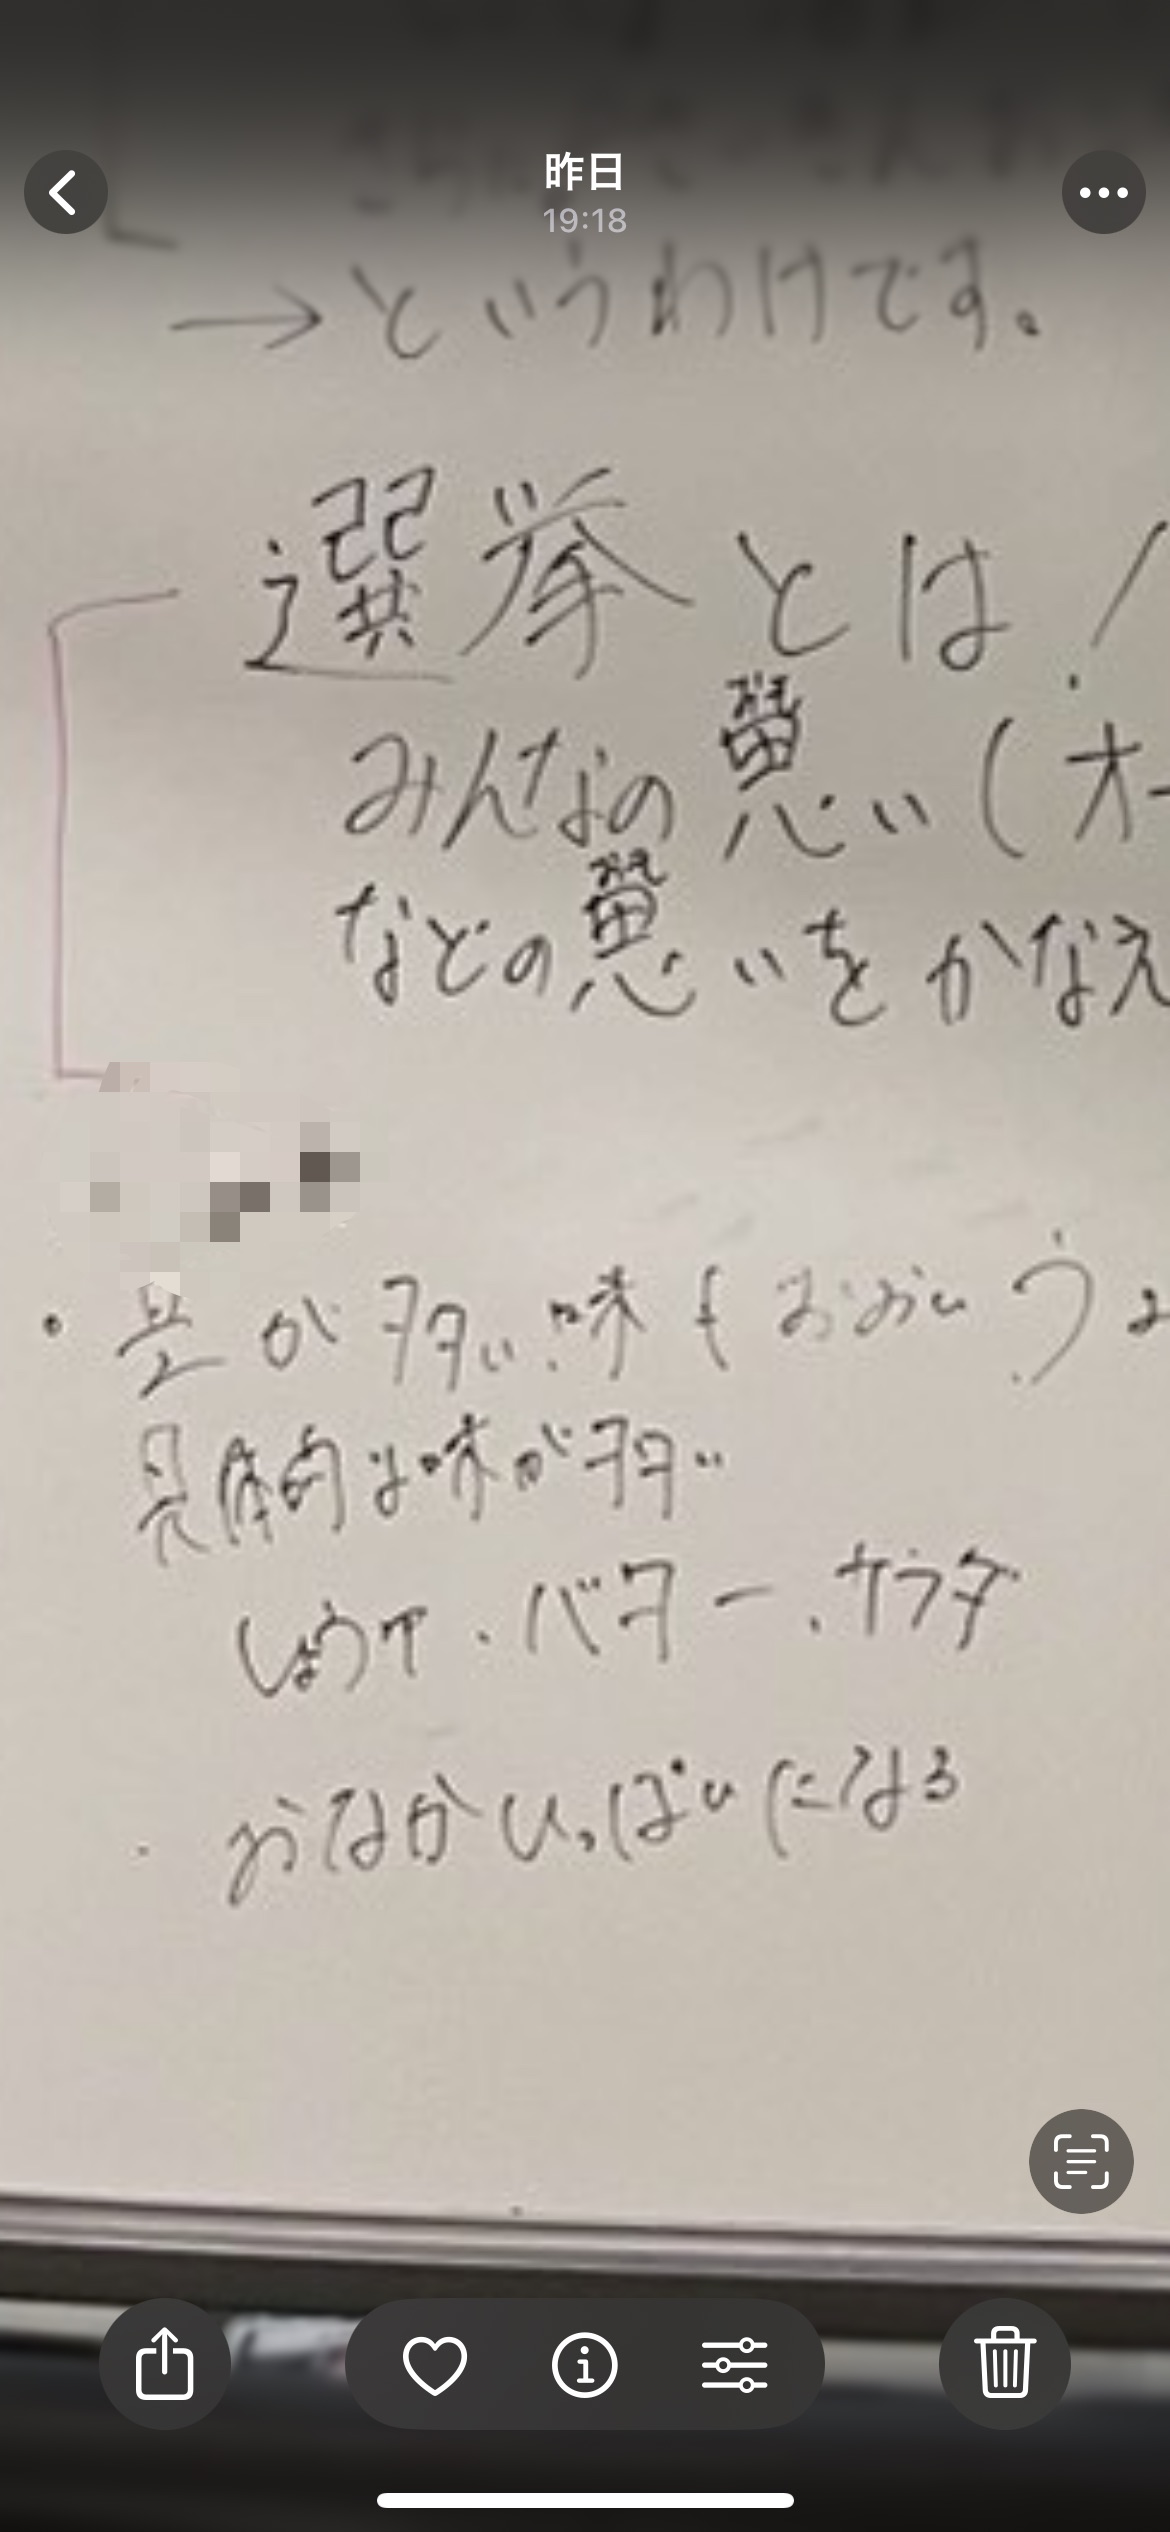 昨日
19:18
→というわけです。
選挙とは!
みんなの思い(オー
などの思いをかなえ
・量が多い.味もおおい
具体的な味が多い
しょうゆ・バター・サラダ
・おなかいっぱいになる